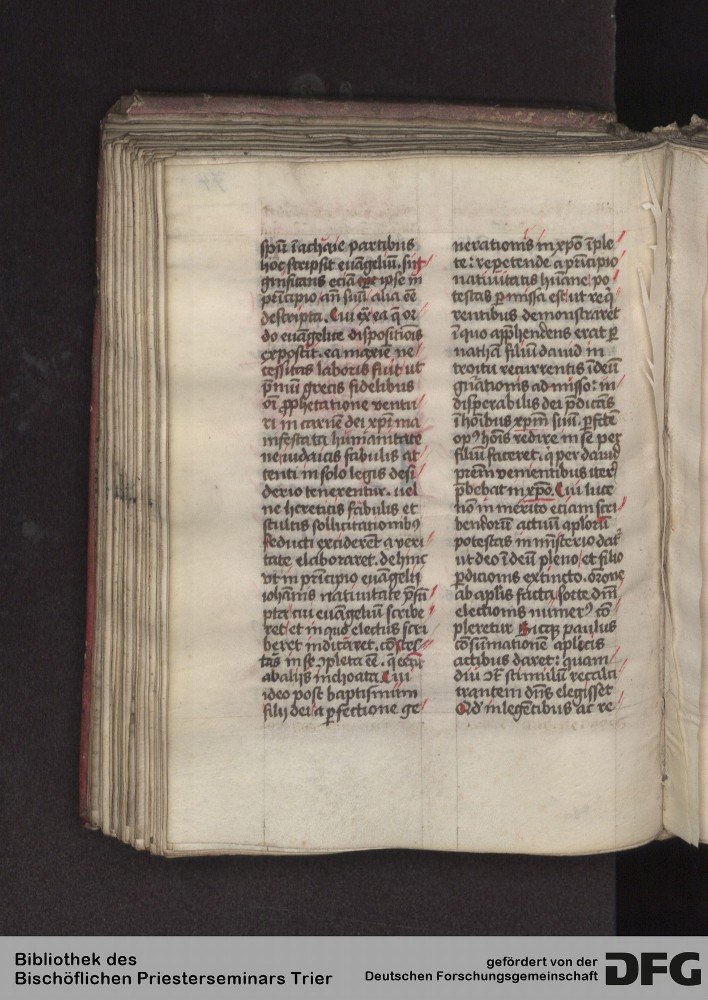 spū ī achaie partibus
hoc scripsit euāgeliū. sig
gnificans eciā qꝫ ipse in
prīcipio añ suū alia eē
descripta. Cui ex̄ ea q̄ or
do euāgelice dispositiōis
expostit. ea maxīe ne
cessitas laboris fuit ut
pͥmū grecis fidelibus
oī ꝓphetatione ventu
ri in carnē dei xpī ma
nifestata humanitate
ne iudaicis fabulis at
tenti in solo legis desi
derio tenerentur. uel
ne hereticis fabulis et
stultis sollicitationibꝰ
seducti exciderēt a veri
tate elaboraret. dehinc
vt in prīcipio euāgelii
iohānis natiuitate pͥsū
pta cui euāgeliū scribe
ret et in quo electus scri
beret indicaret. cōtes
tās in se ꝯpleta eē. q̄ eēnt
ab aliis inchoata. Cui
ideo post baptismum
filij dei a ꝑfectione ge
nerationis in xpō īple
te: repetende a prīcipio
natiuitatis hūane po
testas ꝑmissa est ut reqͥ
rentibus demonstraret
ī quo app̄hendens erat ꝑ
nathā filiū dauid in
troitu recurrentis ī deū
gn̄ationis admisso: in
disperabilis dei p̄dicās
ī hoībus xpm̄ suū. ꝑfcē
opꝰ hoīs redire in se per
filiū faceret. q̄ per dauid
prēm venientibus iterͥ
p̄bebat in xpō. Cui luce
nō in merito eciam scri
bendorū actuū aplorū
potestas in mīsterio dat̄
ut deo ī deū pleno et filio
ꝑdicionis extincto. orōne
ab aplīs facta sorte dn̄i
electionis numerꝰ cō
pleretur Sicqꝫ paulus
cōsūmationē aplīcis
actibus daret: quam
diu ꝯtͣ stimulū recalci
trantem dn̄s elegisset
Qd̓ in legētibus ac re
Bibliothek des
Bischöflichen Priesterseminars Trier
gefördert von der
Deutschen Forschungsgemeinschaft
DFG